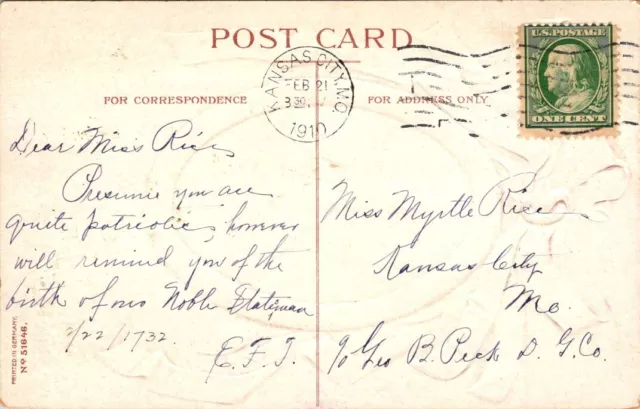 POST CARD
U.S. POSTAGE
ONE CENT
KANSAS CITY, MO.
FEB 21
1910
FOR CORRESPONDENCE
FOR ADDRESS ONLY
Dear Miss Rice,
Presume you are
quite patriotic, however
will remind you of the
birth of our Noble Statsman
2/22/1732.
E. F. J.
Miss Myrtle Rice
Kansas City
Mo.
c/o Geo B. Peck D. G. Co.
PRINTED IN GERMANY.
No 51646.